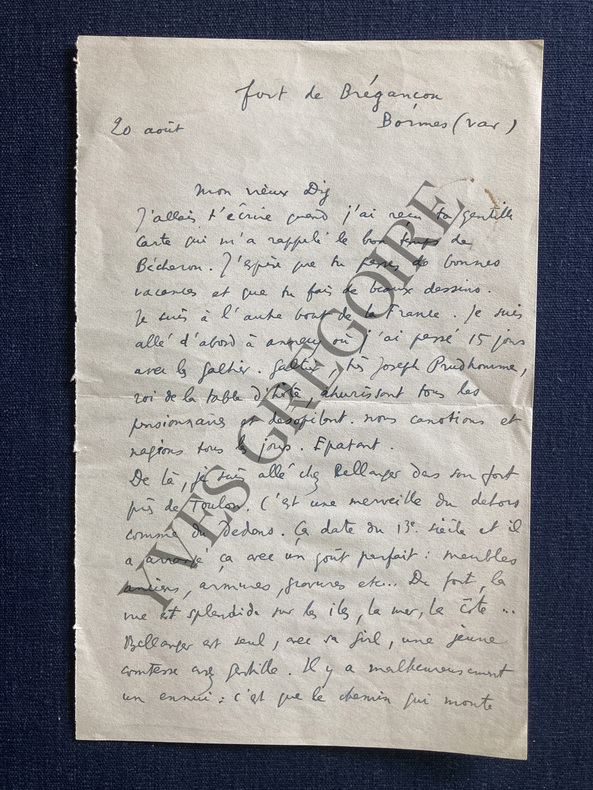 fort de Brégançon
20 août
Bormes (var)
mon vieux Dig
J'allais t'écrire quand j'ai reçu ta gentille
carte qui m'a rappelé le bon temps de
Bécheron. J'espère que tu passes de bonnes
vacances et que tu fais de beaux dessins.
Je suis à l'autre bout de la France. Je suis
allé d'abord à annecy où j'ai passé 15 jours
avec les Galtier. Galtier, très Joseph Prudhomme,
roi de la table d'hôte, ahurissant tous les
pensionnaires et desopilant. nous canotions et
nagions tous les jours. Epatant.
De là, je suis allé chez Bellanger dans son fort
près de Toulon. C'est une merveille du dehors
comme du Dedans. Ça date du 13e siècle et il
a arrangé ça avec un goût parfait : meubles
anciens, armures, gravures etc... Du fort, la
vue est splendide sur les iles, la mer, la côte ..
Bellanger est seul, avec sa girl, une jeune
comtesse assez gentille. Il y a malheureusement
un ennui : c'est que le chemin qui monte
YVES GREGOIRE